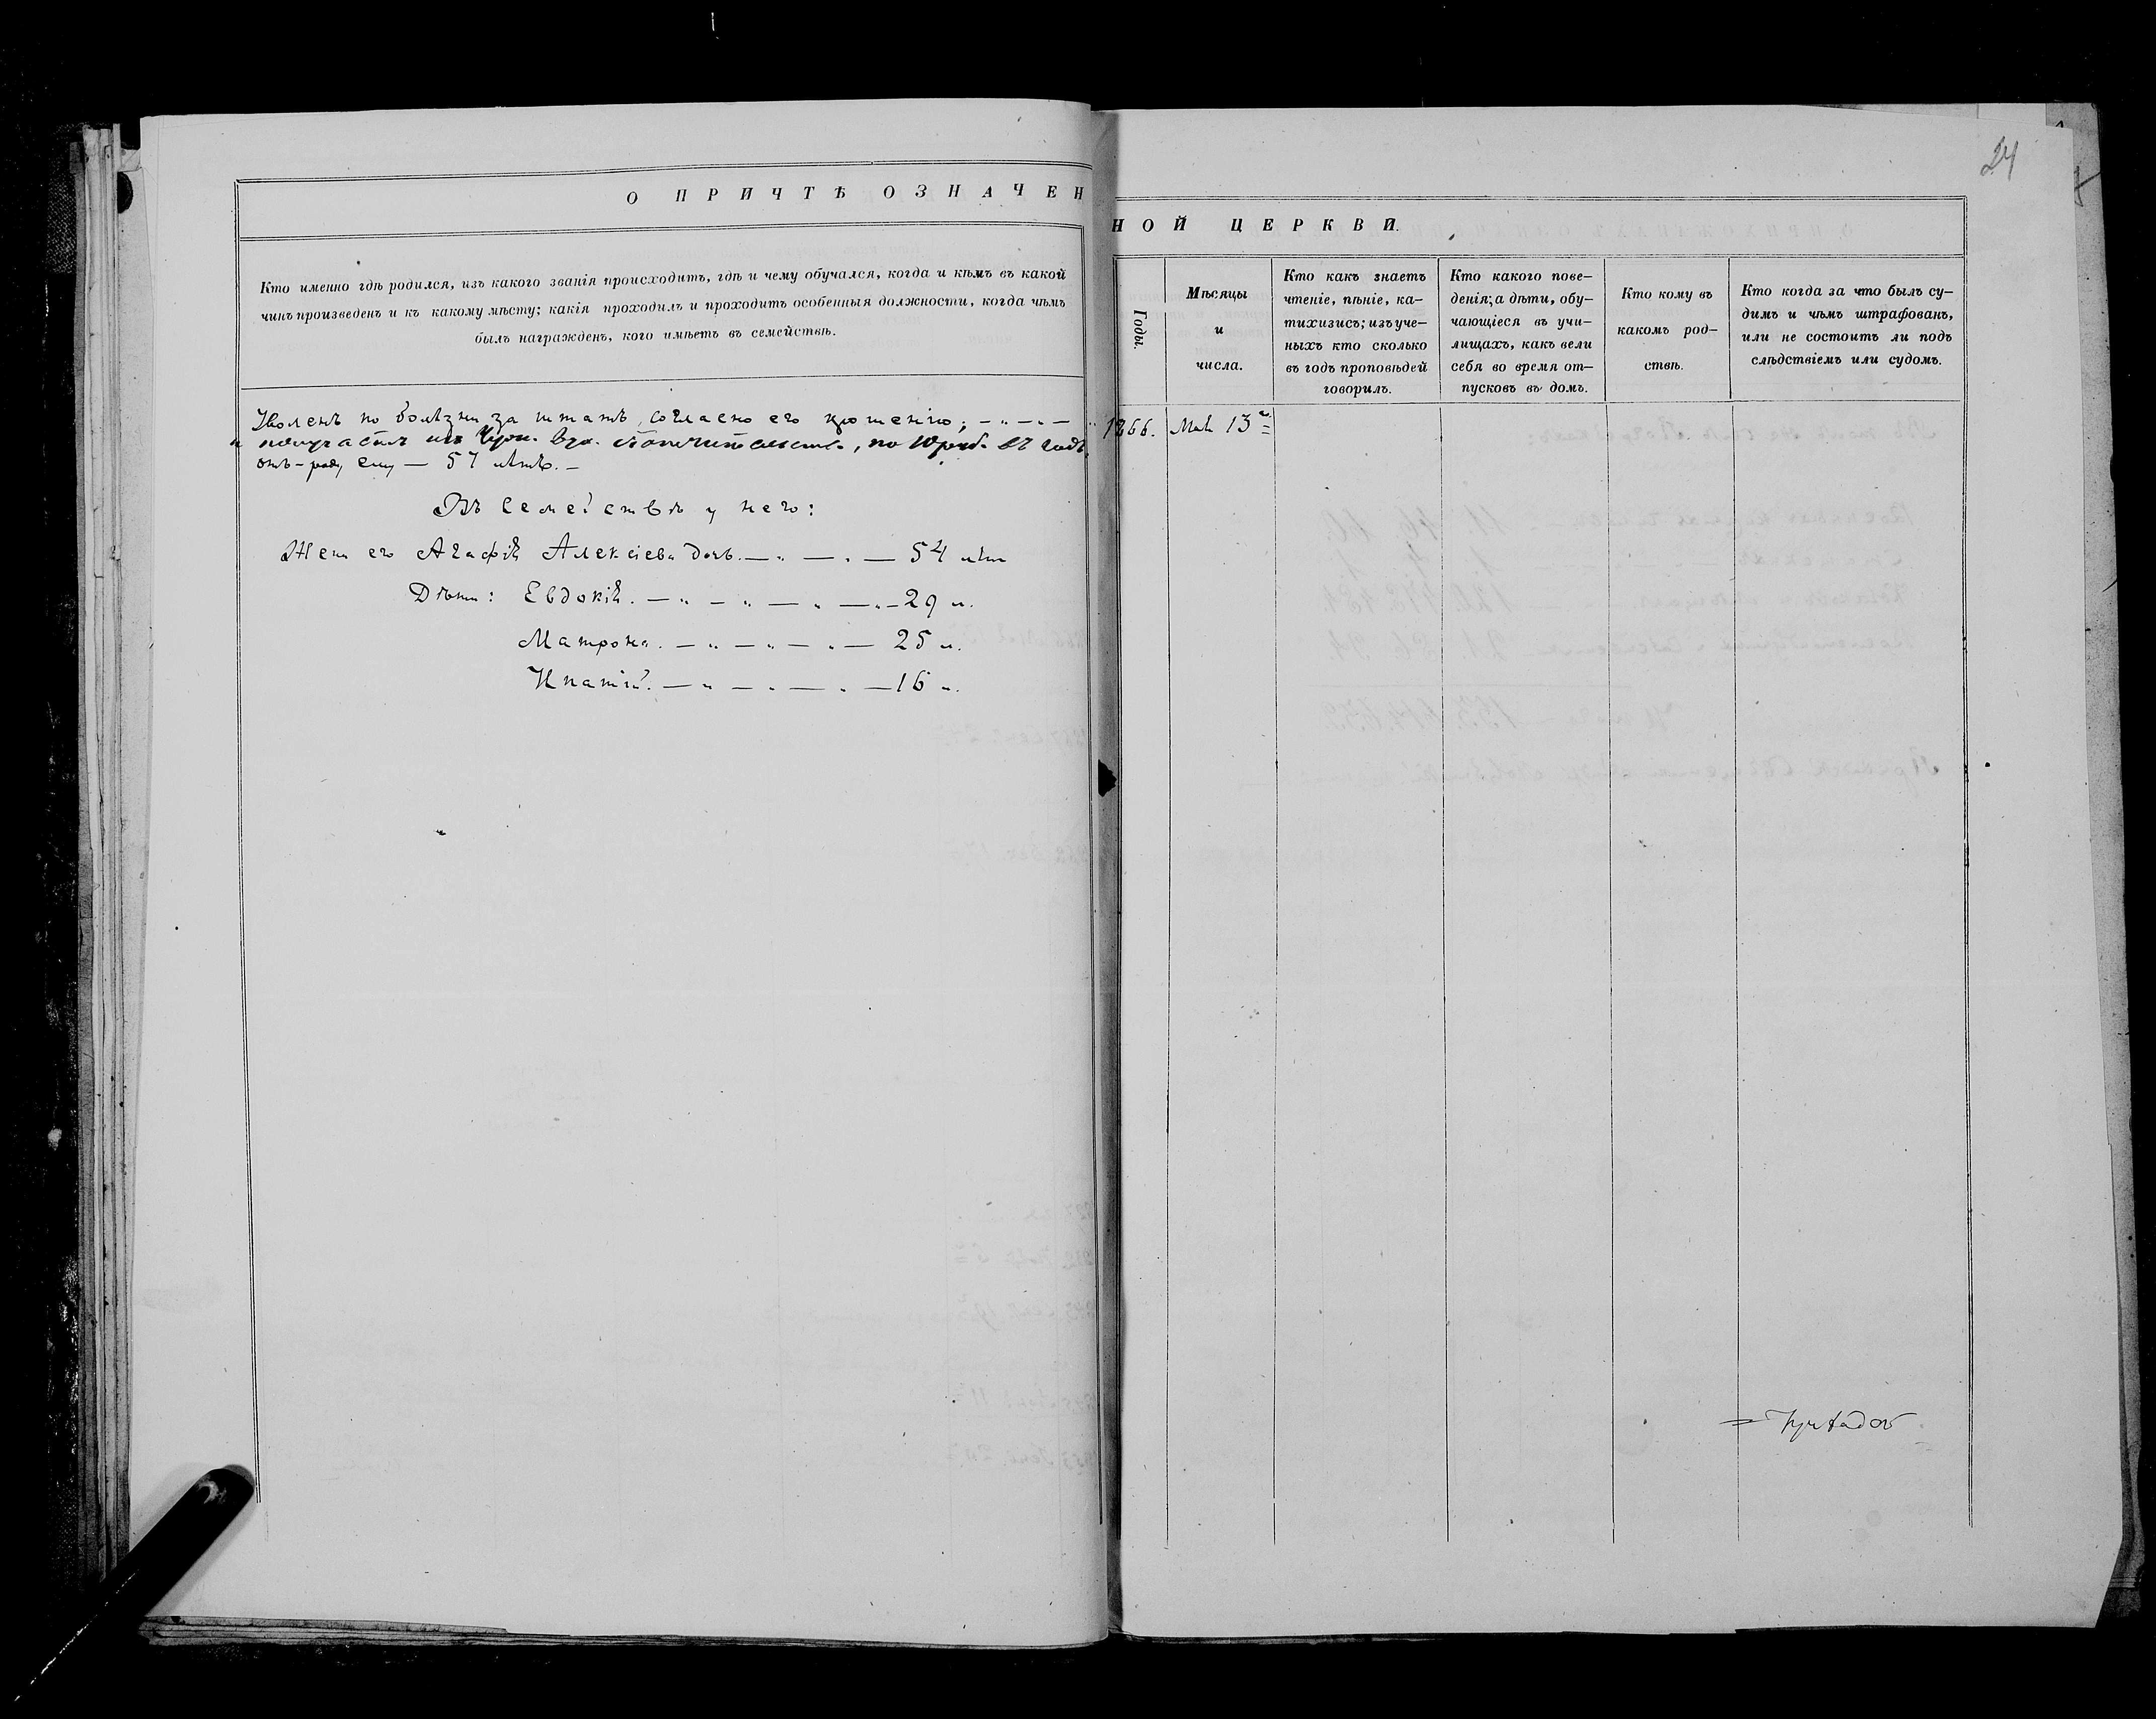 24
О ПРИЧТѢ ОЗНАЧЕН
НОЙ ЦЕРКВИ.
Кто именно гдѣ родился, изъ какого званія происходитъ, гдѣ и чему обучался, когда и кѣмъ въ какой
чинъ произведенъ и къ какому мѣсту; какія проходилъ и проходитъ особенныя должности, когда чѣмъ
былъ награжденъ, кого имѣетъ въ семействѣ.
Годы.
Мѣсяцы
и
числа.
Кто какъ знаетъ
чтеніе, пѣніе, ка-
тихизисъ; изъ уче-
ныхъ кто сколько
въ годъ проповѣдей
говорилъ.
Кто какого пове-
денія; а дѣти, обу-
чающіеся въ учи-
лищахъ, какъ вели
себя во время от-
пусковъ въ домъ.
Кто кому въ
какомъ род-
ствѣ.
Кто когда за что былъ су-
димъ и чѣмъ штрафованъ,
или не состоитъ ли подъ
слѣдствіемъ или судомъ.
Уволенъ по болѣзни за штатъ, согласно его прошенію;
1866. Маія 13
по 10 руб. въ годъ,
ему — 57 лѣтъ. —
Въ семействѣ у него:
Жена его Агафія Алексіева дочь. — 54 лѣт
Дѣти: Евдокія. — 29 л.
Матрона. — 25 л.
Ипатій. — 16 л.